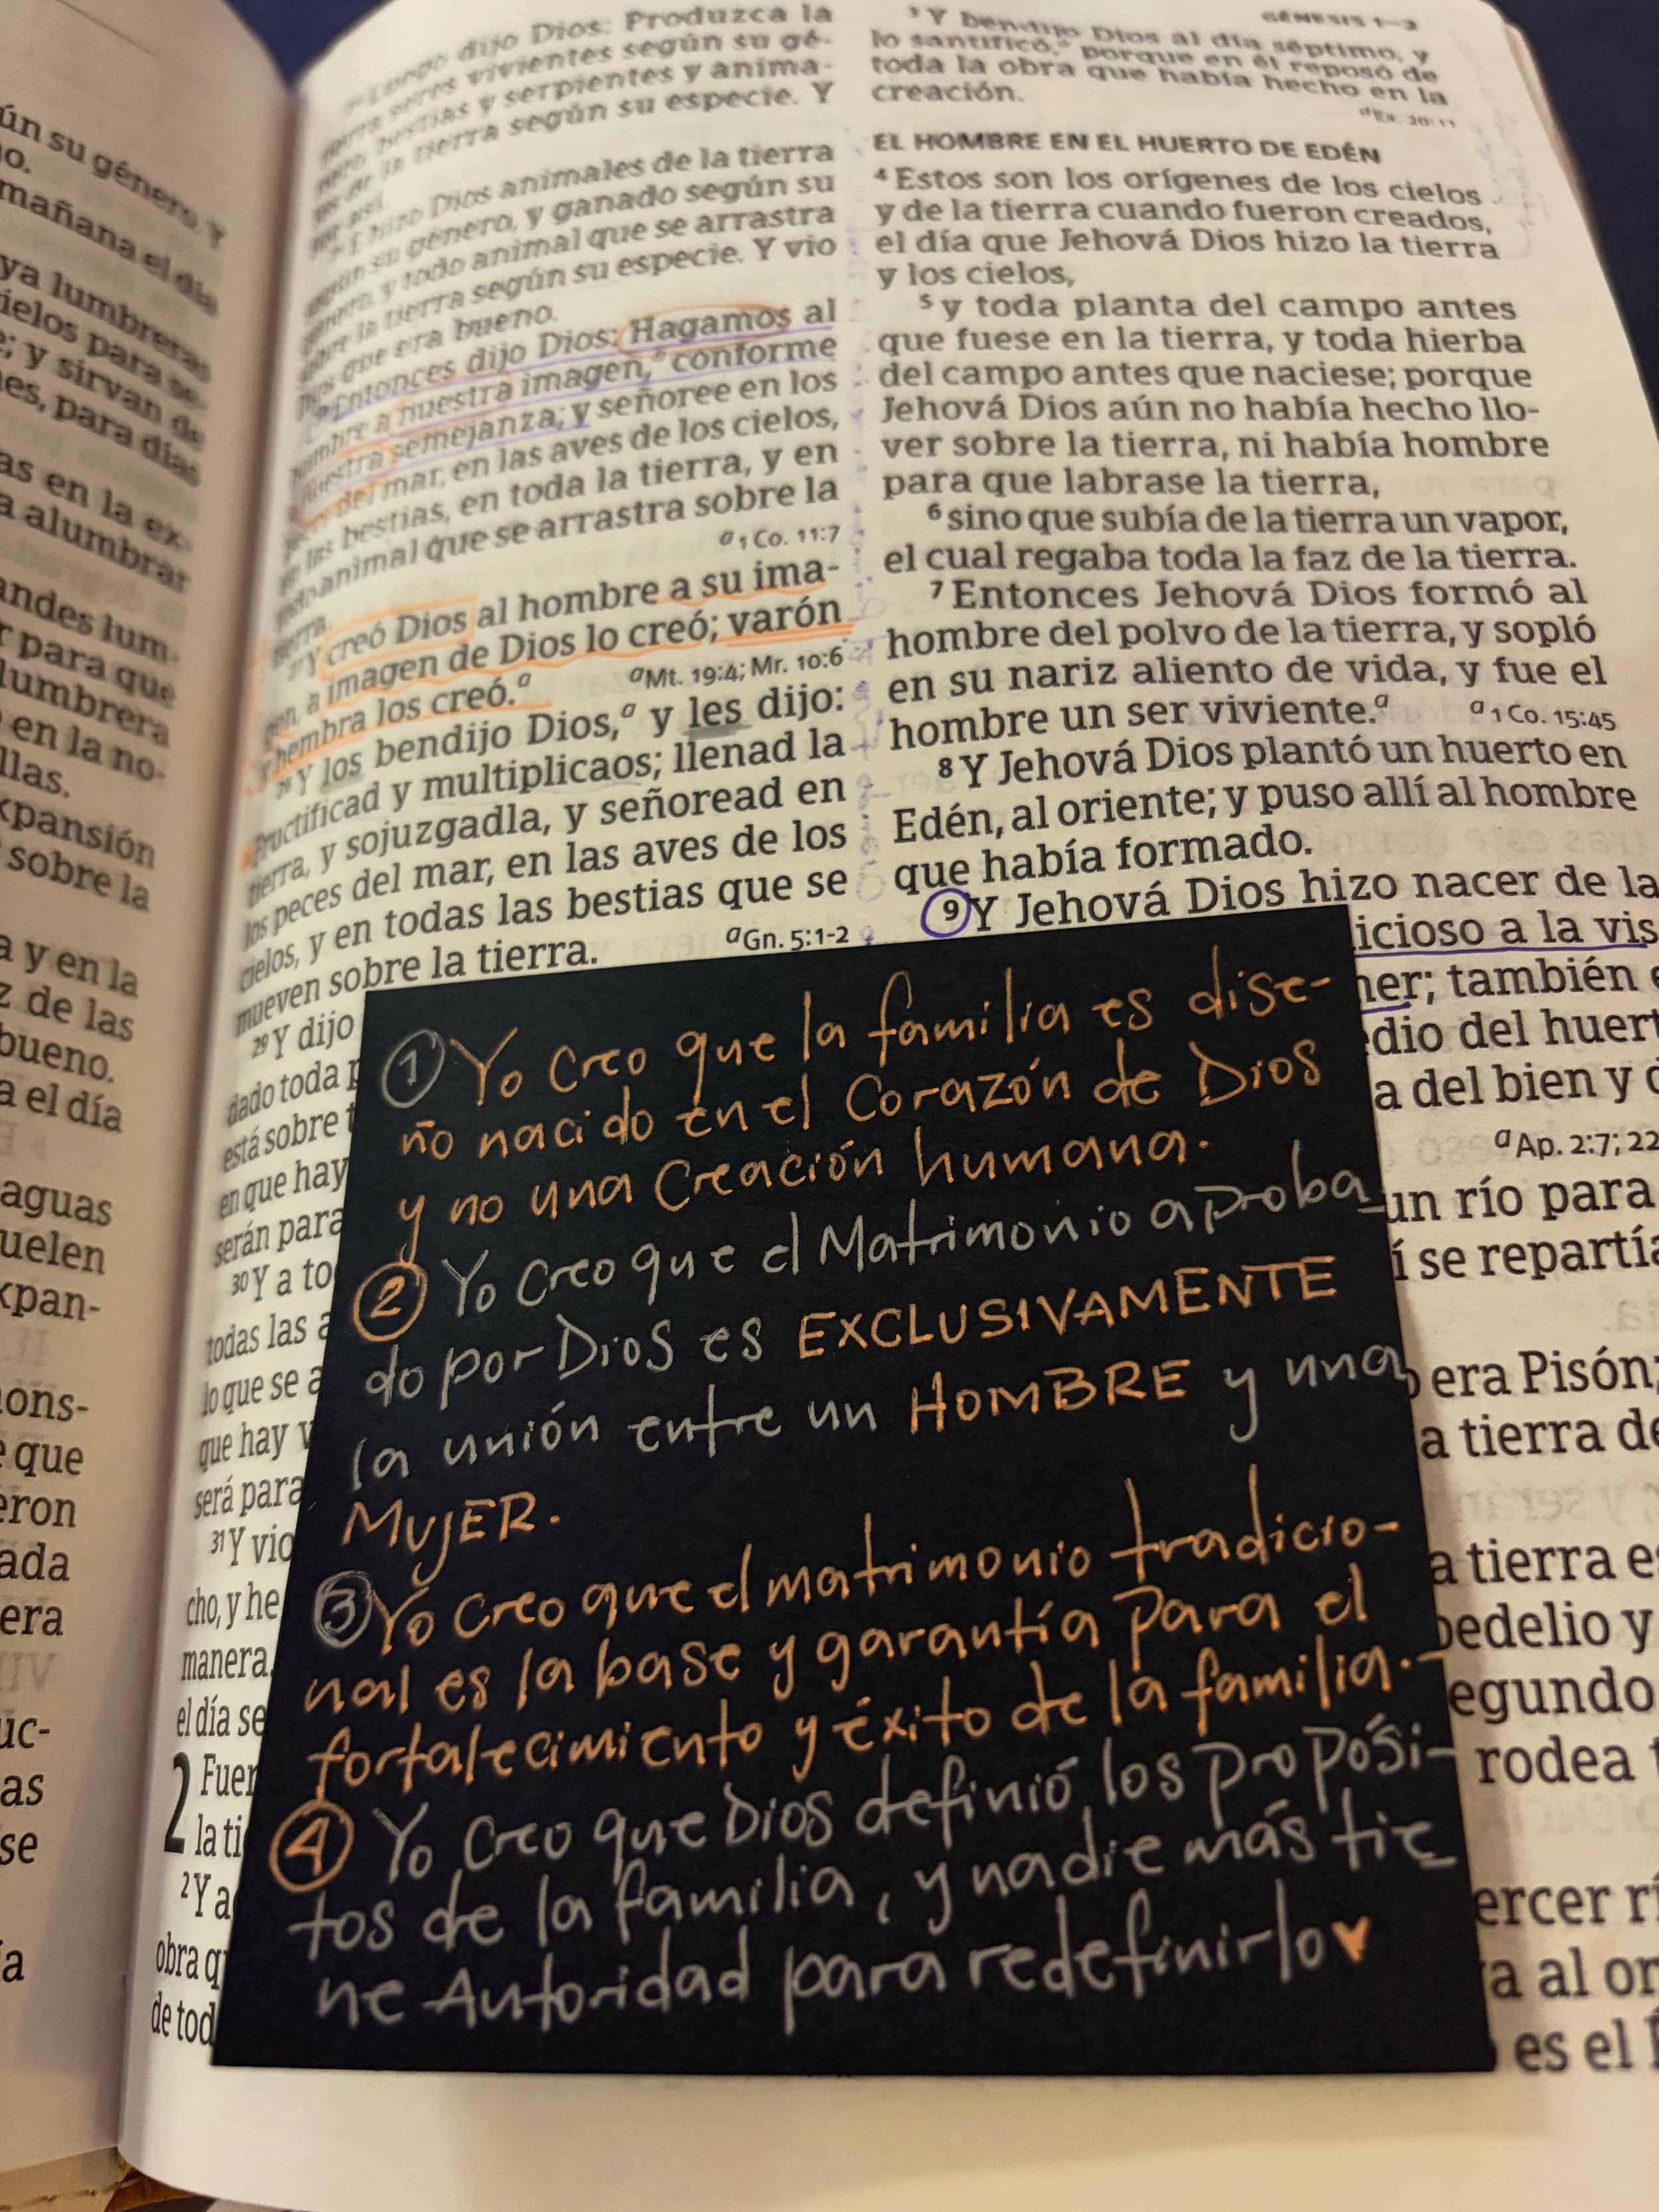 ún su género. Y
o.
mañana el día
ya lumbreras
ielos para se-
e; y sirvan de
nes, para días
as en la ex-
a alumbrar
andes lum-
r para que
lumbrera
en la no-
llas.
xpansión
sobre la
a y en la
z de las
bueno.
a el día
aguas
uelen
xpan-
ons-
e que
eron
ada
era
uc-
as
se
ía
Luego dijo Dios: Produzca la
tierra seres vivientes según su gé-
nero, bestias y serpientes y anima-
les de la tierra según su especie. Y
fue así.
E hizo Dios animales de la tierra
según su género, y ganado según su
género, y todo animal que se arrastra
sobre la tierra según su especie. Y vio
Dios que era bueno.
Entonces dijo Dios: Hagamos al
hombre a nuestra imagen,a conforme
a nuestra semejanza; y señoree en los
peces del mar, en las aves de los cielos,
en las bestias, en toda la tierra, y en
todo animal que se arrastra sobre la
tierra.
a 1 Co. 11:7
27 Y creó Dios al hombre a su ima-
gen, a imagen de Dios lo creó; varón
y hembra los creó.a
a Mt. 19:4; Mr. 10:6
28 Y los bendijo Dios,a y les dijo:
Fructificad y multiplicaos; llenad la
tierra, y sojuzgadla, y señoread en
los peces del mar, en las aves de los
cielos, y en todas las bestias que se
mueven sobre la tierra.
a Gn. 5:1-2
29 Y dijo
dado toda p
está sobre t
en que hay
serán para
30 Y a to
todas las a
lo que se a
que hay v
será para
31 Y vio
cho, y he
manera.
el día se
2 Fuer
la ti
2 Y a
obra q
de tod
GÉNESIS 1—2
3 Y bendijo Dios al día séptimo, y
lo santificó,a porque en él reposó de
toda la obra que había hecho en la
creación.
a Ex. 20:11
EL HOMBRE EN EL HUERTO DE EDÉN
4 Estos son los orígenes de los cielos
y de la tierra cuando fueron creados,
el día que Jehová Dios hizo la tierra
y los cielos,
5 y toda planta del campo antes
que fuese en la tierra, y toda hierba
del campo antes que naciese; porque
Jehová Dios aún no había hecho llo-
ver sobre la tierra, ni había hombre
para que labrase la tierra,
6 sino que subía de la tierra un vapor,
el cual regaba toda la faz de la tierra.
7 Entonces Jehová Dios formó al
hombre del polvo de la tierra, y sopló
en su nariz aliento de vida, y fue el
hombre un ser viviente.a
a 1 Co. 15:45
8 Y Jehová Dios plantó un huerto en
Edén, al oriente; y puso allí al hombre
que había formado.
9 Y Jehová Dios hizo nacer de la
icioso a la vis
ner; también e
edio del huert
a del bien y d
a Ap. 2:7; 22
un río para
í se repartía
o era Pisón;
a tierra de
a tierra es
bedelio y
egundo
rodea t
ercer rí
a al or
es el É
1 Yo creo que la familia es dise-
ño nacido en el Corazón de Dios
y no una Creación humana.
2 Yo creo que el Matrimonio aproba_
do por Dios es EXCLUSIVAMENTE
la unión entre un HOMBRE y una
MUJER.
3 Yo creo que el matrimonio tradicio-
nal es la base y garantía para el
fortalecimiento y éxito de la familia.-
4 Yo creo que Dios definió los propósi-
tos de la familia, y nadie más tie_
ne Autoridad para redefinirlo